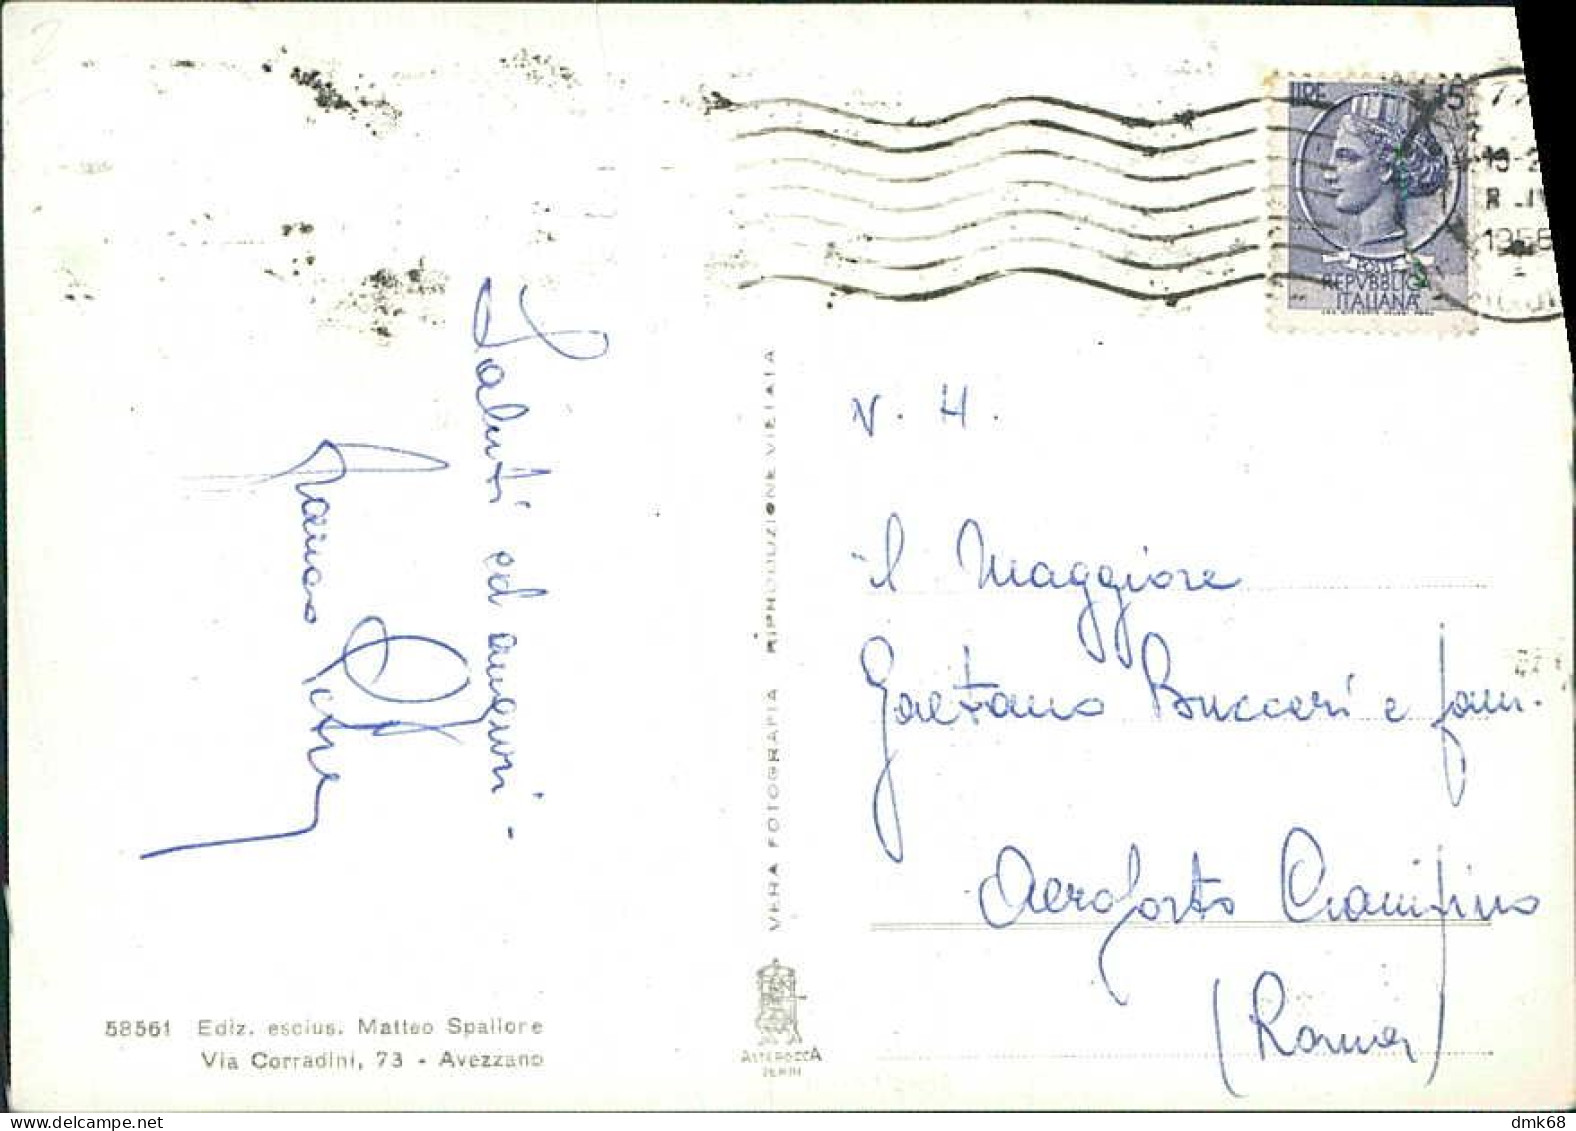 LIRE 15
POSTE
REPVBBLICA
ITALIANA
Saluti ed auguri -
N. H.
il Maggiore
Gaetano Bucceri e fam.
Aeroporto Ciampino
(Roma)
VERA FOTOGRAFIA RIPRODUZIONE VIETATA
58561 Ediz. esclus. Matteo Spallone
Via Corradini, 73 - Avezzano
ALTEROCCA
TERNI
dmk68